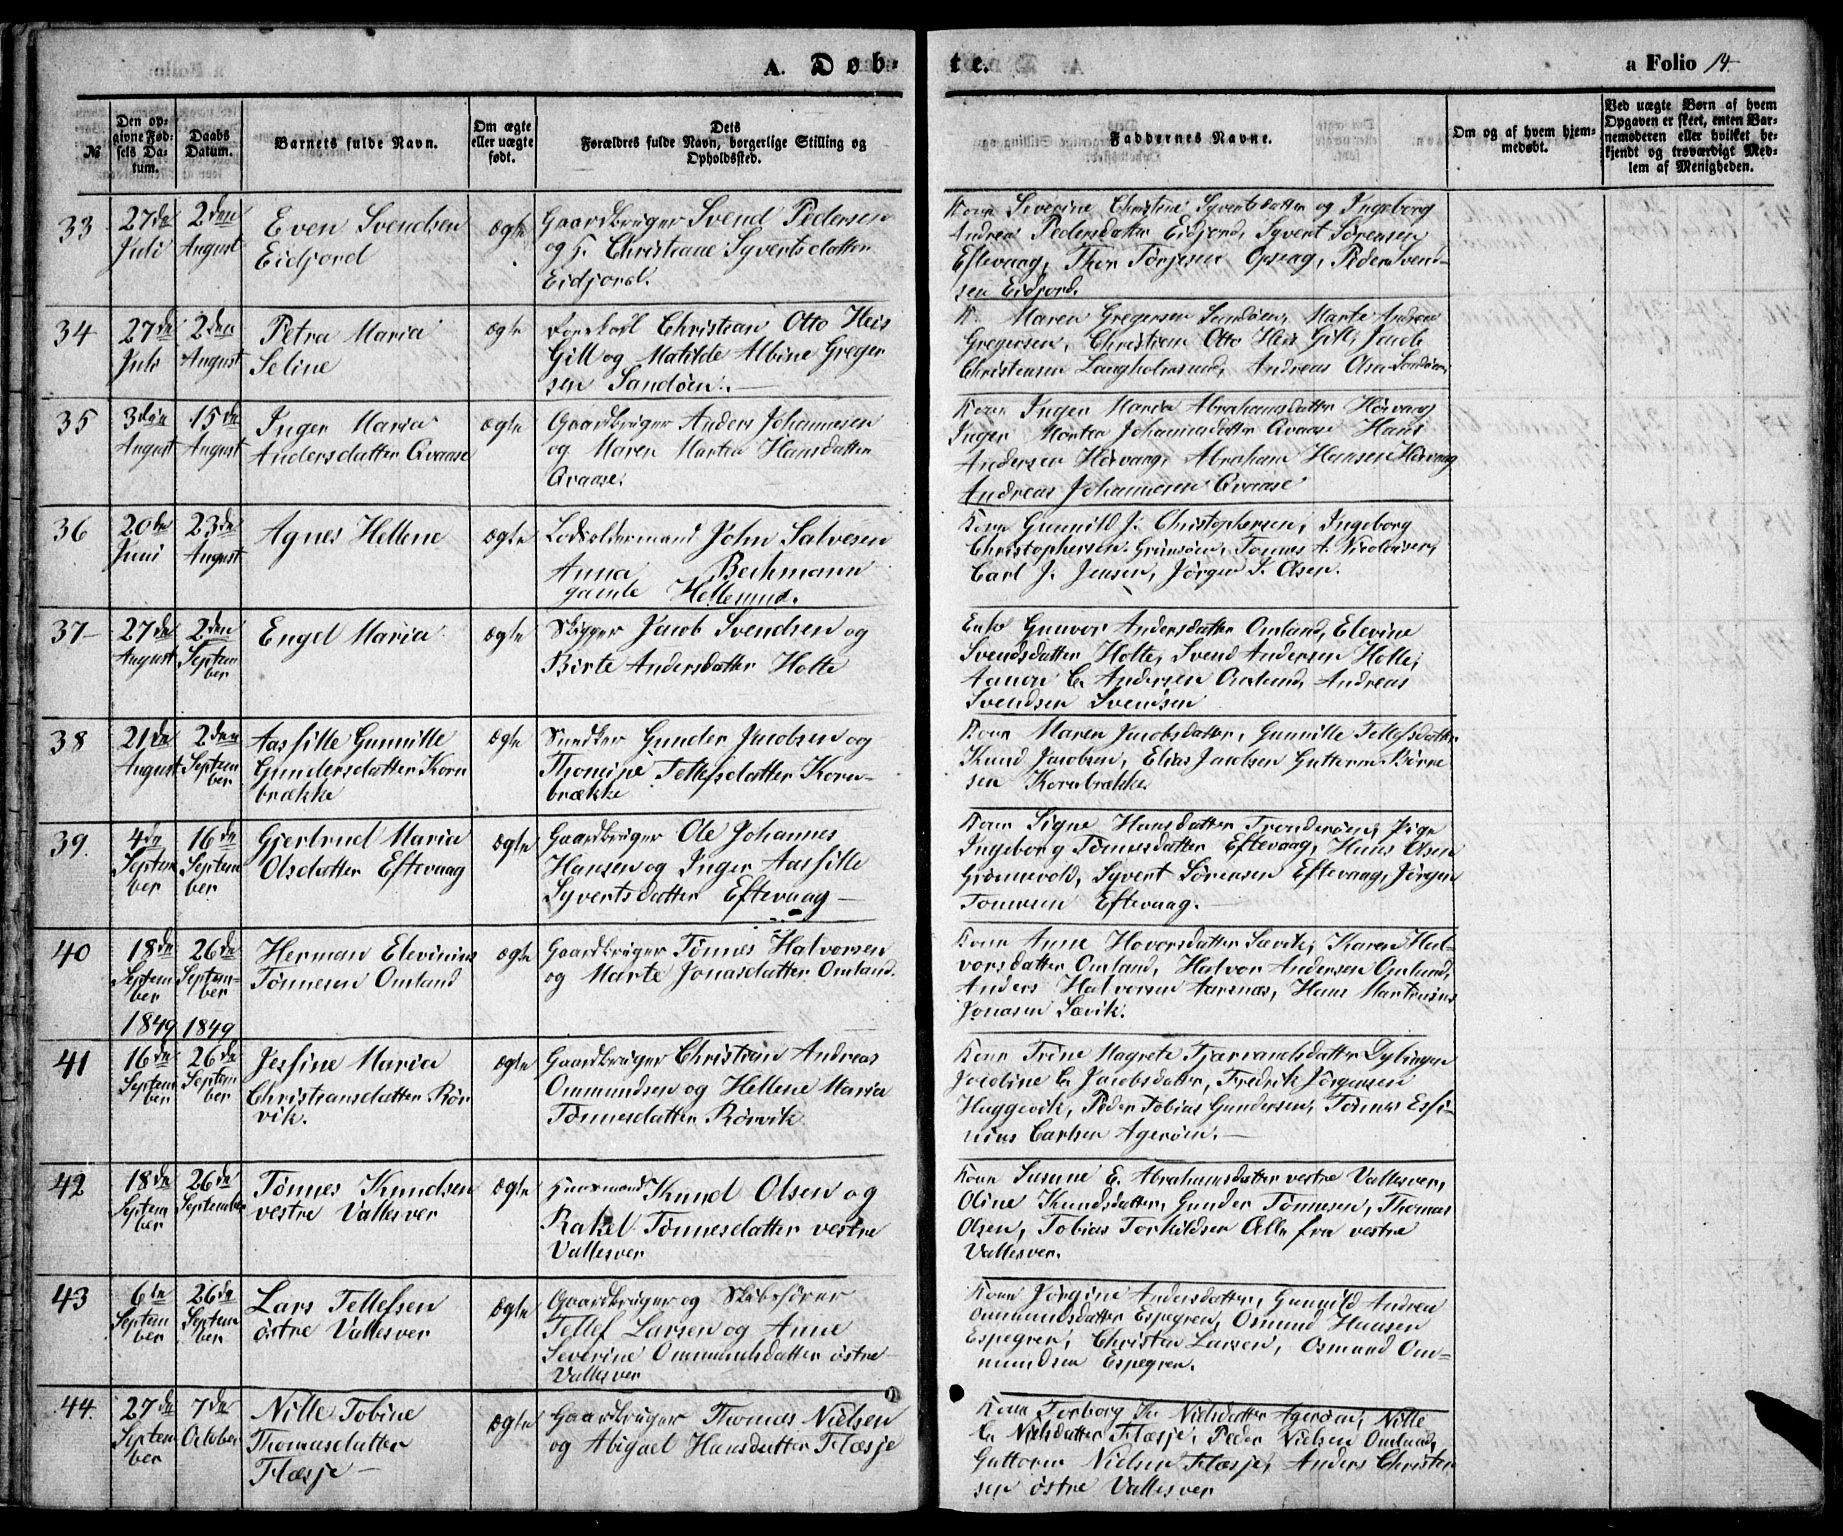 A. Døb-
te.
a Folio 14.
№
Den op-
givne Fød-
sels Da-
tum.
Daabs
Datum.
Barnets fulde Navn.
Om ægte
eller uægte
født.
Dets
Forældres fulde Navn, borgerlige Stilling og
Opholdssted.
Faddernes Navne.
Om og af hvem hjem-
medøbt.
Ved uægte Børn af hvem
Opgaven er skeet, enten Bar-
nemoderen eller hvilket be-
kjendt og troværdigt Med-
lem af Menigheden.
33
27de
Juli
2den
August
Even Svendsen
Eidjord
ægte
Gaardbruger Svend Pedersen
og H. Christiane Syvertsdatter
Eidjord.
Kone Severine Christine Syvertsdatter og Ingeborg
Andrea Pedersdatter Eidjord, Syvert Sørensen
Eftevaag, Thor Torjesen Opsaag, Peder Svend-
sen Eidjord.
34
27de
Juli
2den
August
Petra Maria
Seline
ægte
Christian Otto Heis
Gill og Matilde Albine Greger
sen Sandøen.
K. Maren Gregersen Sandøen, Marte Andrea
Gregersen, Christian Otto Heis Gill, Jacob
Christensen Langholmsund, Andreas Olsen Sandøen
35
3die
August
15de
August
Inger Maria
Andersdatter Qvaase
ægte
Gaardbruger Anders Johannesen
og Maren Martea Hansdatter
Qvaase.
Kone Inger Maria Abrahamsdatter Hørvaag
Inger Martea Johannesdatter Qvaase Hans
Andersen Hørvaag, Abraham Hansen Hørvaag
Andreas Johannesen Qvaase
36
20de
Juni
23de
August
Agnes Hellene
ægte
Lodsoldermand John Salvesen
Anna Bechmann
gamle Hellesund.
Kone Gunnild J. Christophersen, Ingeborg
Christophersen Grimsøen, Tønnes A. Nicolaisen,
Carl J. Jensen, Jørgen S. Olsen.
37
27de
August
2den
Septem
ber
Engel Maria
ægte
Skipper Jacob Svendsen og
Birte Andersdatter Holte
Enke Gunvor Andersdatter Omland, Elevine
Svendsdatter Holte, Svend Andersen Holte,
Aanon C. Andersen Omland, Andreas
Svendsen Svendsen
38
21de
August
2den
Septem
ber
Aasille Gunnille
Gundersdatter Korn
brække
ægte
Snedker Gunder Jacobsen og
Thomine Tellefsdatter Korn-
brække
Kone Maren Jacobsdatter, Gunnille Tellefsdatter
Knud Jacobsen, Elias Jacobsen Guttorm Børre
sen Kornbrække
39.
4de
Septem
ber
16de
Septem
ber
Gjertrud Maria
Olsdatter Eftevaag
ægte
Gaardbruger Ole Johannes
Hansen og Inger Aasille
Syvertsdatter Eftevaag
Kone Signe Hansdatter Tronderøen, Pige
Ingeborg Tønnesdatter Eftevaag, Hans Olsen
Grønnevold, Syvert Sørensen Eftevaag, Jørgen
Tønnesen Eftevaag.
40
18de
Septem
ber
1849
26de
Septem-
ber
1849
Herman Elevinius
Tønnesen Omland
ægte
Gaardbruger Tønnes Halvorsen
og Marte Jonasdatter Omland.
Kone Anne Hovorsdatter Sævik, Karen Hal-
vorsdatter Omland, Halvor Andersen Omland,
Anders Halvorsen Aarsnæs, Hans Martinius
Jonasen Sævik.
41
16de
Septem
ber
26de
Septem
ber
Jessine Maria
Christiansdatter Rør
vik.
ægte
Gaardbruger Christian Andreas
Ommundsen og Hellene Maria
Tønnesdatter Rørvik
Kone Trine Magrete Tjærvandsdatter Dybingen
Jocoline C. Jacobsdatter, Fredrik Jørgensen
Haggevik, Peder Tobias Gundersen, Tønnes Essi-
nius Carlsen Agerøen.
42
18de
Septem
ber
26de
September
Tønnes Knudsen
vestre Vallesver
ægte
Huusmand Knud Olsen og
Rakel Tønnesdatter vestre
Vallesver
Kone Susane E. Abrahamsdatter vestre Vallesver,
Oline Knudsdatter, Gunder Tønnesen, Thomas
Olsen, Tobias Torkildsen Alle fra vestre
Vallesver.
43
6te
Septem
ber
26de
Septem
ber
Lars Tellefsen
østre Vallesver
ægte
Gaardbruger og Skibsfører
Tellef Larsen og Anne
Severine Ommundsdatter østre
Vallesver
Kone Jørgine Andersdatter, Gunnild Andrea
Ommundsdatter Espegren, Osmund Hansen
Espegren, Christen Larsen, Osmund Om-
mundsen Espegren.
44.
27de
Septem
ber
7de
October
Nille Tobine
Thomasdatter
Flæsje
ægte
Gaardbruger Thomas Nielsen
og Abigael Hansdatter Flæsje
Kone Torborg K. Nielsdatter Agerøen, Nille
C. Nielsdatter Flæsje, Peder Nielsen Omland,
Guttorm Nielsen Flæsje, Anders Christen
sen østre Vallesver